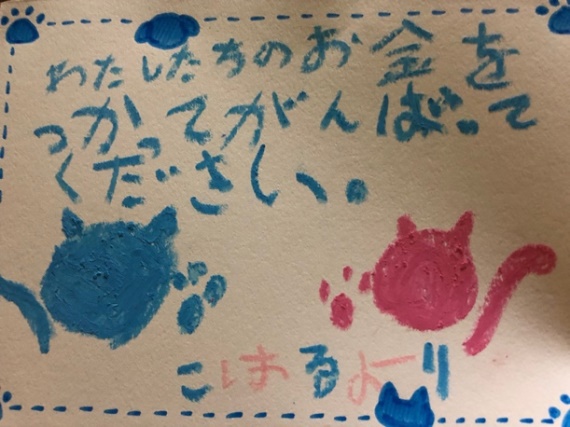 わたしたちのお金を
つかってがんばって
ください。
こはるより